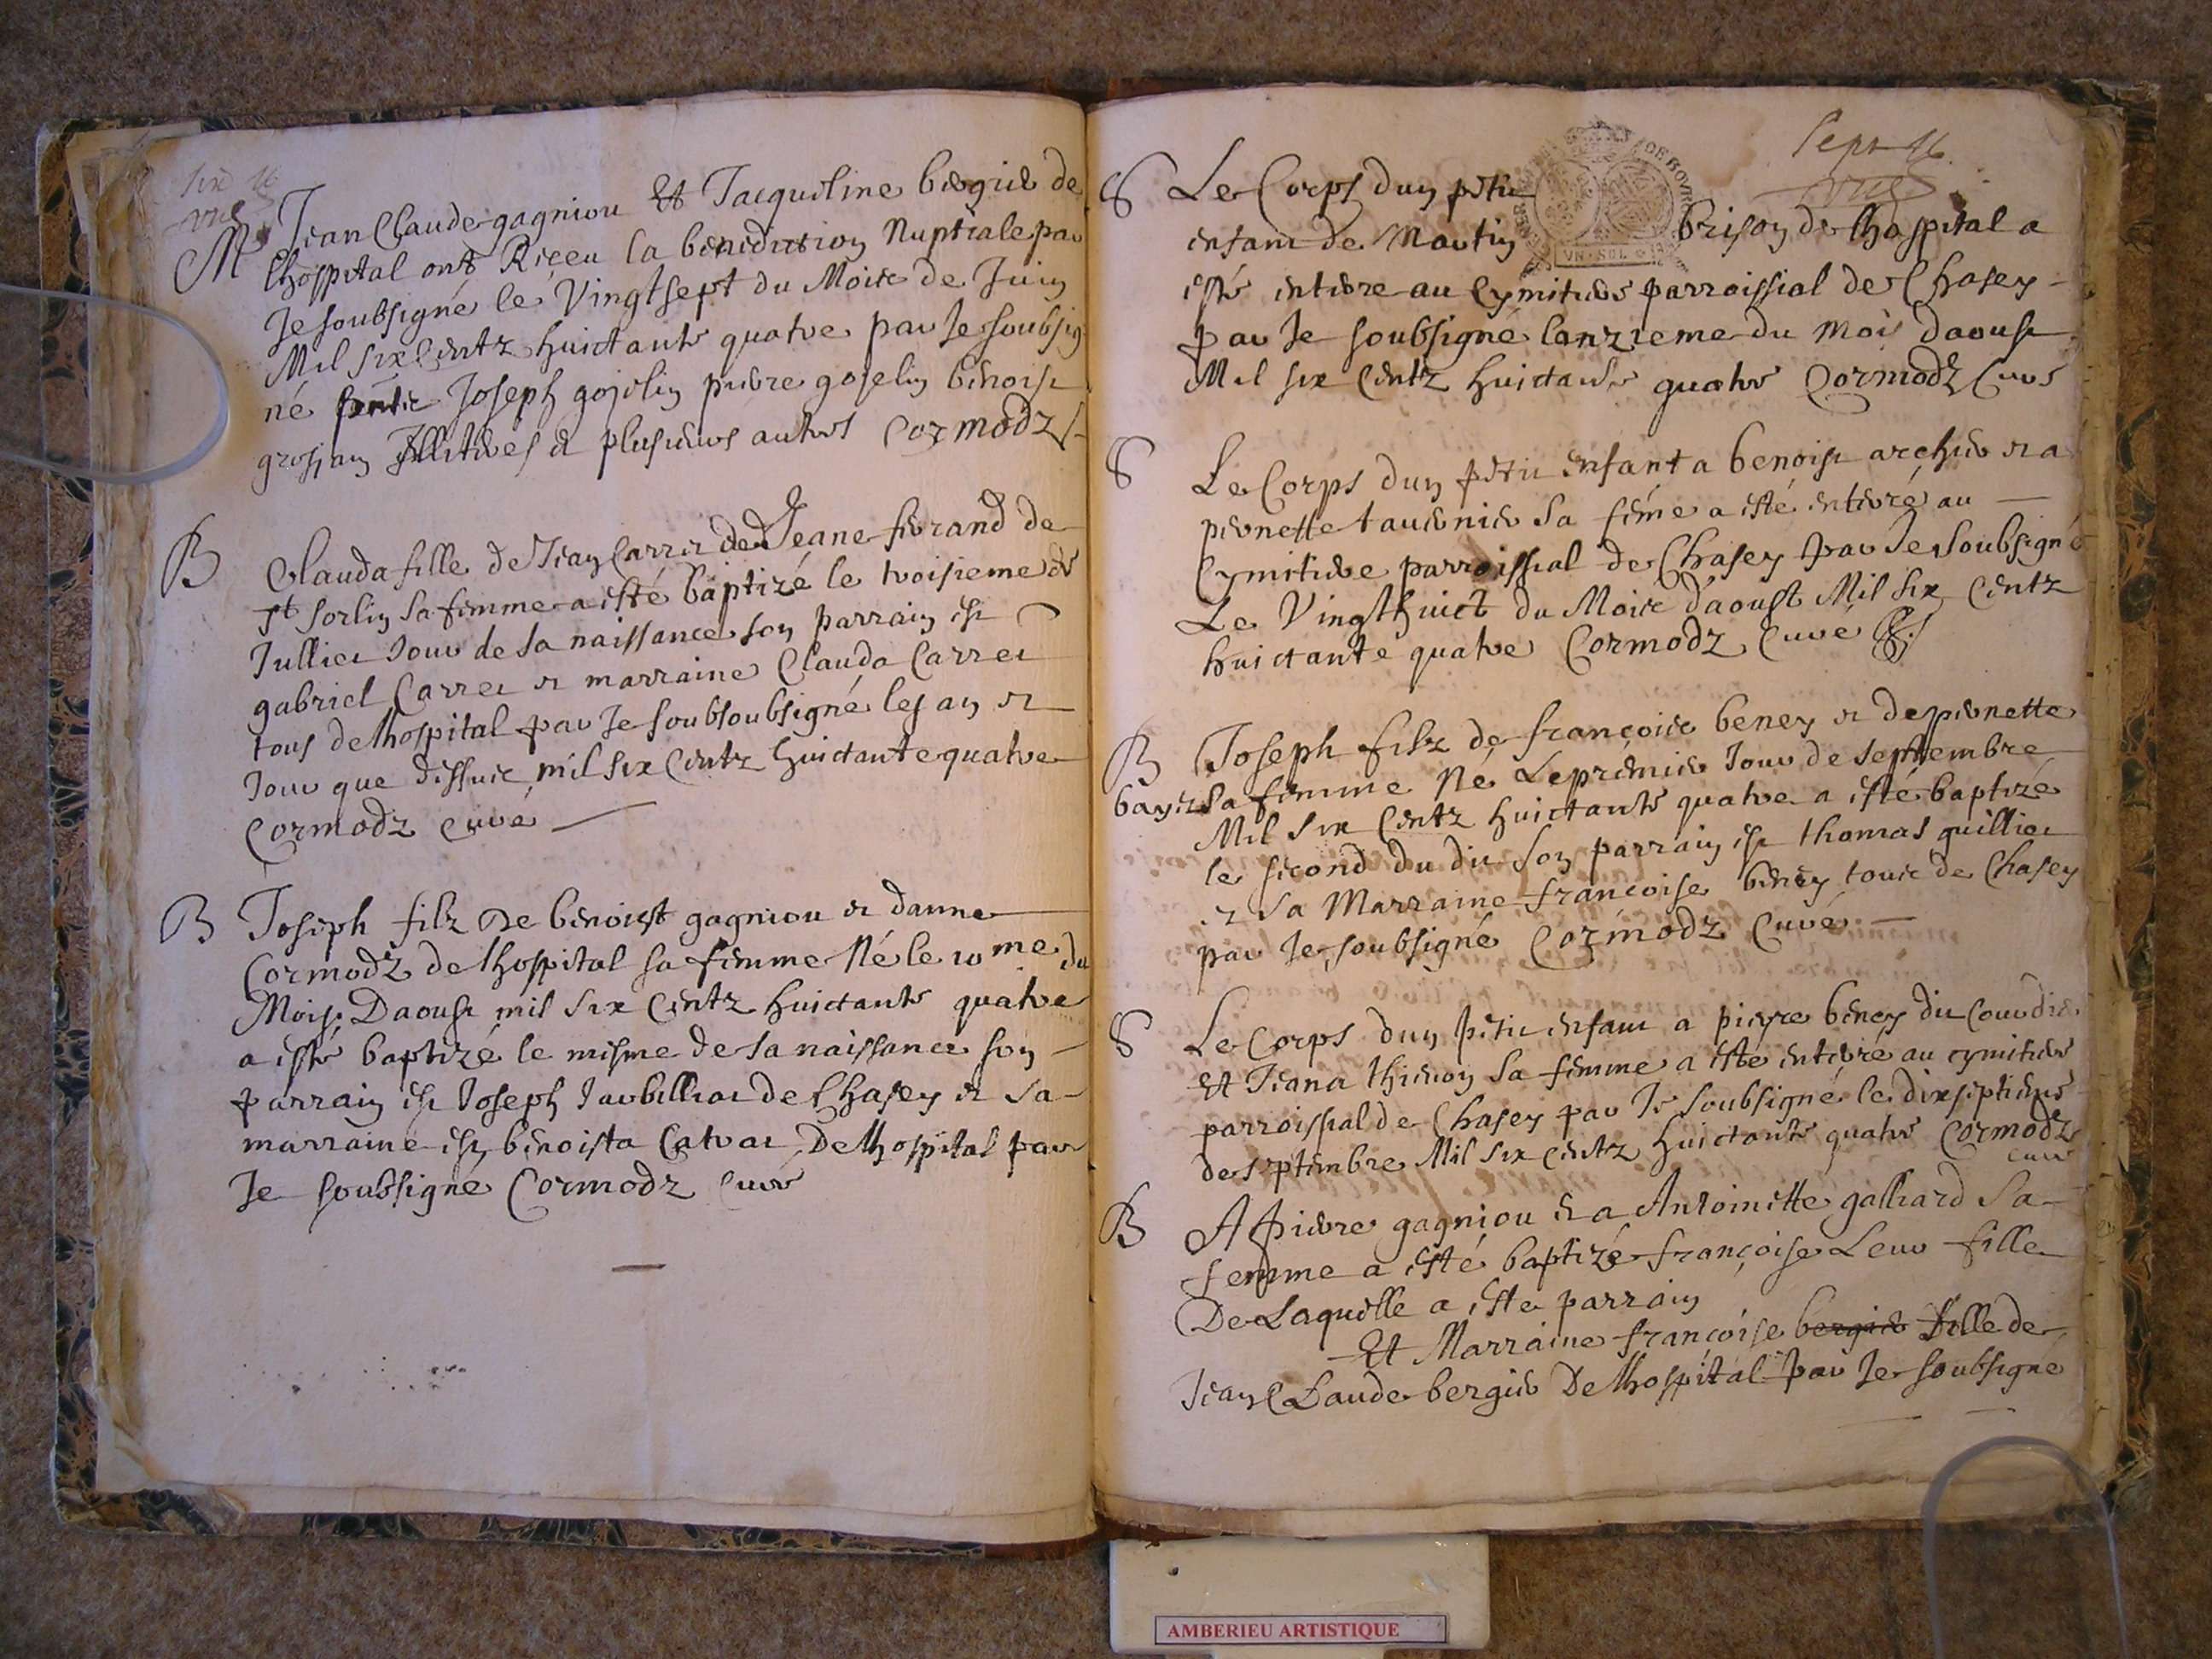 M Jean Claude gagniou Et Jacqueline bergier de
lhospital ont Receu la benediction Nuptiale par
Je soubsigné le Vingtsept du Moise de Juin
Mil six Centz huictante quatre par Je soubsig
né Joseph gojelin pierre gojelin benoist
grosjan Illiteres et plusieurs autres Cormodz
B Clauda fille de Jean Carret de Jeane ferand de
st sorlin sa femme a esté baptizé le troisieme de
Julliet Jour de sa naissance son parrain est
gabriel Carret et marraine Clauda Carret
tous de lhospital par Je soubsoubsigné les an et
Jour que dessuie mil six Centz huictante quatre
Cormodz Curé
B Joseph filz De benoist gagniou et danne
Cormodz de lhospital sa femme Né le 10me du
Mois Daoust mil six Centz huictante quatre
a esté baptizé le mesme de sa naissance son
parrain est Joseph Jarbilliat de Chasey et sa
marraine est benoista Catrat De lhospital par
Je soubsigné Cormodz Curé
Sept 16
S Le Corps dun petit
enfant de Martin brison de lhospital a
esté enterre au Cymitiere parroissial de Chasey
par Je soubsigné lonzieme du mois daoust
Mil six Centz huictante quatre Cormodz Curé
VN · SOL
S Le Corps dun petit enfant a benoist archier et a
piernette tavernier sa féme a esté enterré au
Cymitiere parroissial de Chasey par Je soubsigné
Le Vingthuict du Moise daoust Mil six Centz
huictante quatre Cormodz Curé
B Joseph filz de françoise beney et de piernette
bayet sa femme Né Le premier Jour de septembre
Mil six Centz huictante quatre a esté baptizé
le second du dit son parrain est thomas guilliet
et sa Marraine francoise beney touie de Chasey
par Je soubsigné Cormodz Curé
S Le Corps dun petit enfant a pierre beney dit
Et Jeana thievon sa femme a esté enterré au cymitiere
parroissial de Chasey par Je soubsigné le dixseptieme
de septembre Mil six Centz huictante quatre Cormodz
Curé
B A pierre gagniou et a Antoinette galliard sa
femme a esté baptizé françoise Leur fille
De Laquelle a este parrain
Et Marraine françoise bergier fille de
Jean Claude bergier De lhospital par Je soubsigné
AMBERIEU ARTISTIQUE